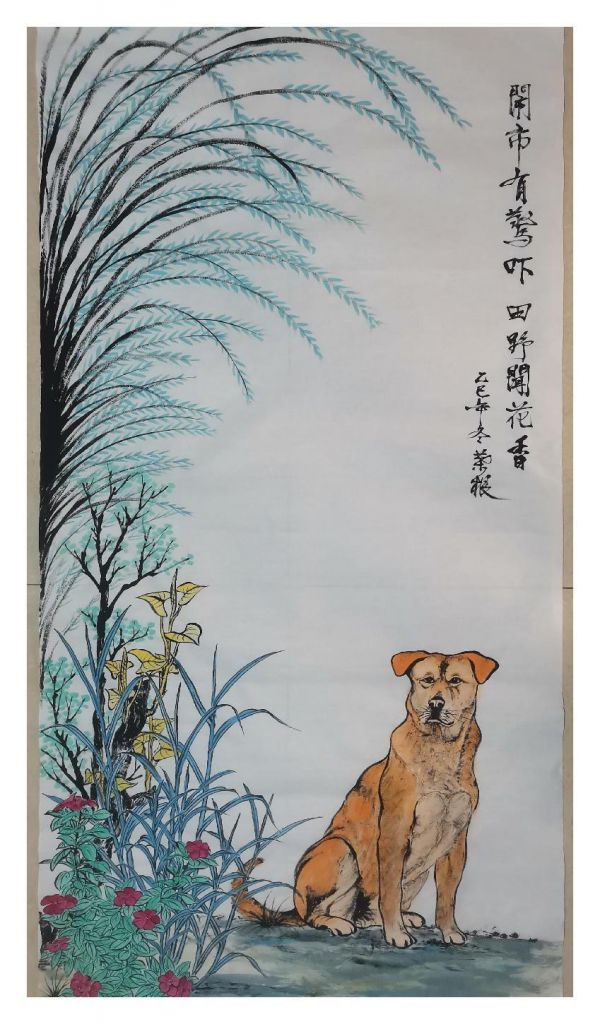 開市有驚吓 田野聞花香
乙巳年冬 荣根